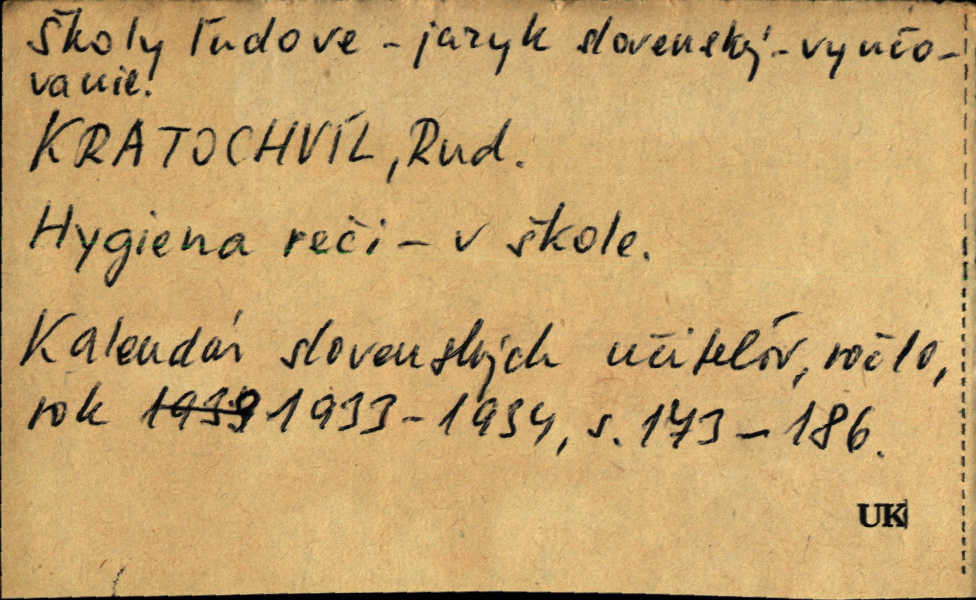 Školy ľudove - jazyk slovenský - vyučo-
vanie.
KRATOCHVÍL, Rud.
Hygiena reči - v škole.
Kalendár slovenských učiteľov, roč. 10,
rok 1939 1933-1934, s. 173-186.
UK